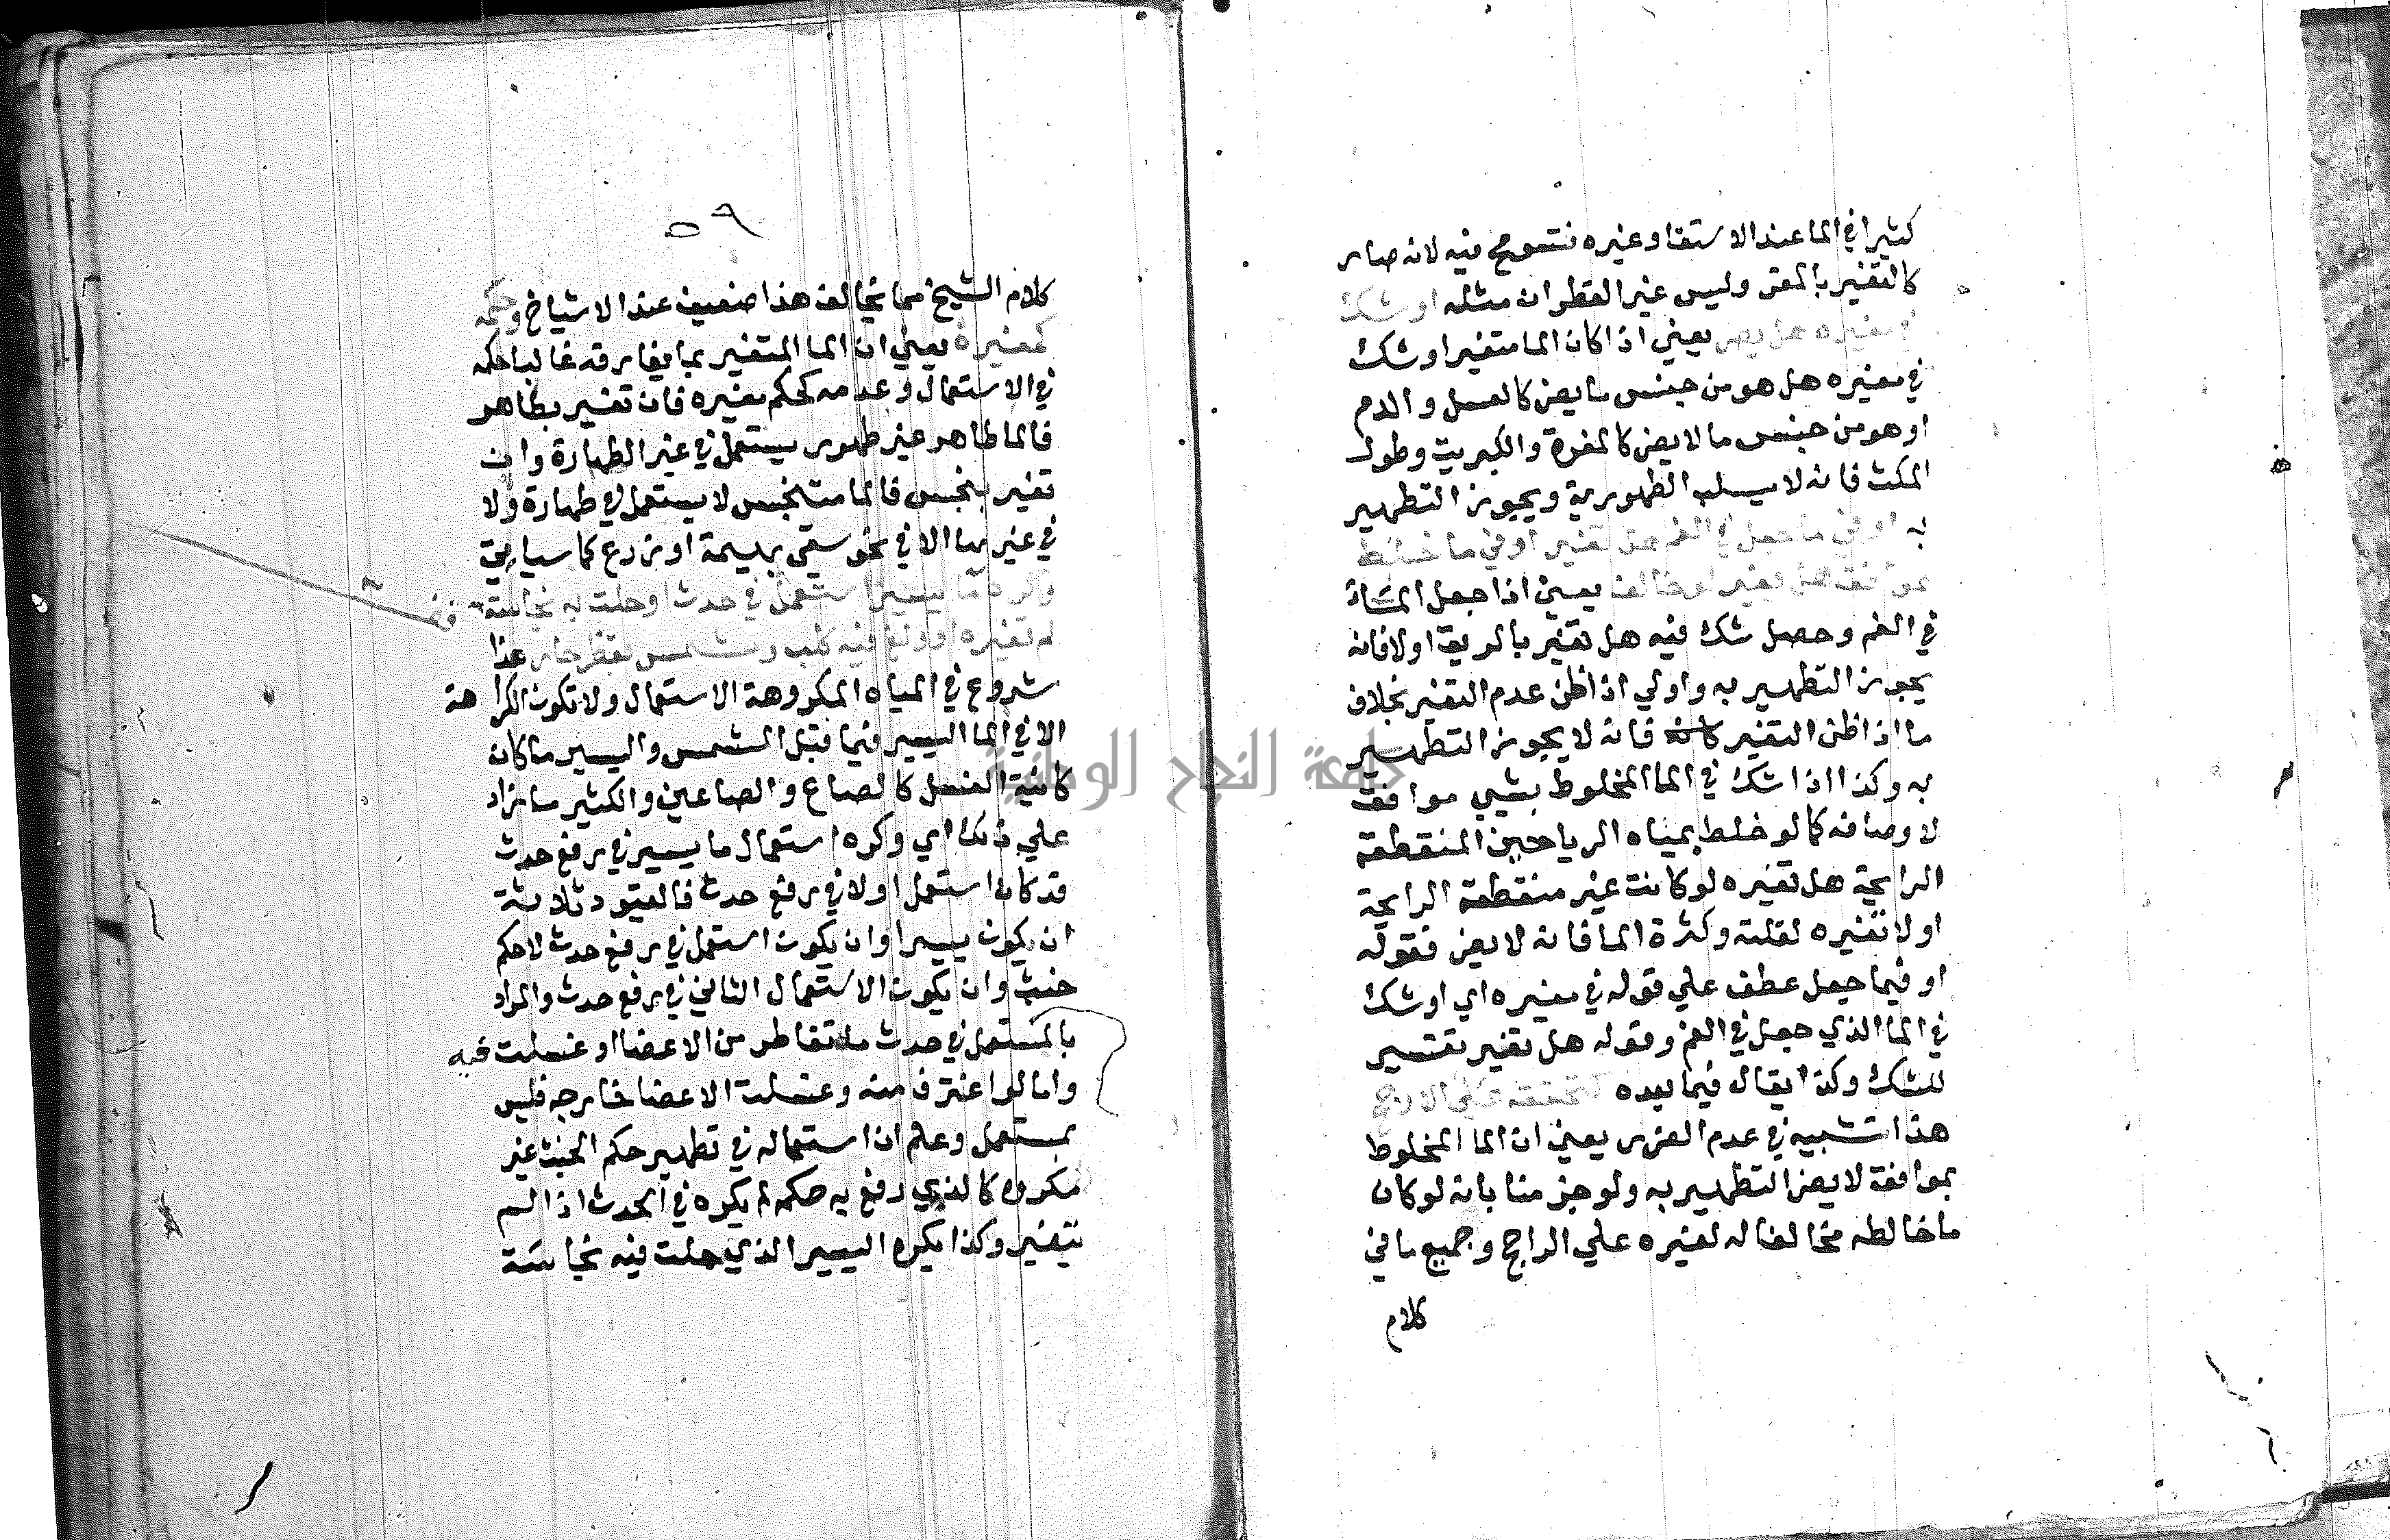 كثيرا في الما عند الاستقا وغيره فتسومح فيه لانه صار
كالتغير بالمقر وليس غير القطران مثله او شك
في مغيره هل يضر يعني اذا كان الما متغيرا وشك
في مغيره هل هو من جنس ما يضر كالعسل والدم
او هو من جنس ما لا يضر كالمغرة والكبريت وطول
المكث فانه لا يسلب الطهورية ويجوز التطهير
به او في ما جعل في الفم هل تغير او في ما خلط
بموافق هل يغير لو خالف يعني اذا جعل الماء
في الفم وحصل شك فيه هل تغير بالريق اولا فانه
يجوز التطهير به واولي اذا ظن عدم التغير بخلاف
ما اذا ظن التغير فانه لا يجوز التطهير
به وكذا اذا شك في الما المخلوط بشيي موافق
لاوصافه كما لو خلط بمياه الرياحين المنقطعة
الرايحة هل تغيره لو كانت غير منقطعة الرايحة
اولا تغيره لقلته وكثرة الما فانه لا يضر فقوله
او فيما جعل عطف علي قوله في مغيره اي او شك
في الما الذي جعل في الفم وقوله هل تغير تفسير
للشك وكذا يقال فيما بعده كتحققه علي الارجح
هذا تشبيه في عدم الضرر يعني ان الما المخلوط
بموافقة لا يضر التطهير به ولو جزمنا بانه لو كان
ما خالطه مخالفا له لغيره علي الراجح وجميع ما في
كلام
٥٩
كلام الشيخ مما يخالف هذا ضعيف عند الاشياخ وحكمه
كمغيره يعني ان الما المتغير بما يفارقه غالبا حكمه
في الاستعمال وعدمه كحكم مغيره فان تغير بطاهر
فالما طاهر غير طهور يستعمل في غير الطهارة وان
تغير بنجس فالما متنجس لا يستعمل في طهارة ولا
في غيرها الا في نحو سقي بهيمة او زرع كما سياتي
وكره ما يسير استعمل في حدث او حلت به نجاسة
لم تغيره او ولغ فيه كلب ومشمس بقطر حار هذا
شروع في المياه المكروهة الاستعمال ولا تكون الكراهة
الا في الما اليسير فيما قبل الشمس واليسير ما كان
كانية الغسل كالصاع والصاعين والكثير ما زاد
علي ذلك اي وكره استعمال ما يسير في رفع حدث
قد كان استعمل اولا في رفع حدث فالقيود ثلاثة
ان يكون يسيرا وان يكون استعمل في رفع حدث لا حكم
خبث وان يكون الاستعمال الثاني في رفع حدث والمراد
بالمستعمل في حدث ما تقاطر من الاعضا او غسلت فيه
واما لو اغترف منه وغسلت الاعضا خارجه فليس
بمستعمل وعلم ان استعماله في تطهير حكم الخبث غير
مكروه كالذي رفع به حكمه لم يكره في الحدث اذا لم
يتغير وكذا يكره اليسير الذي حلت فيه نجاسة